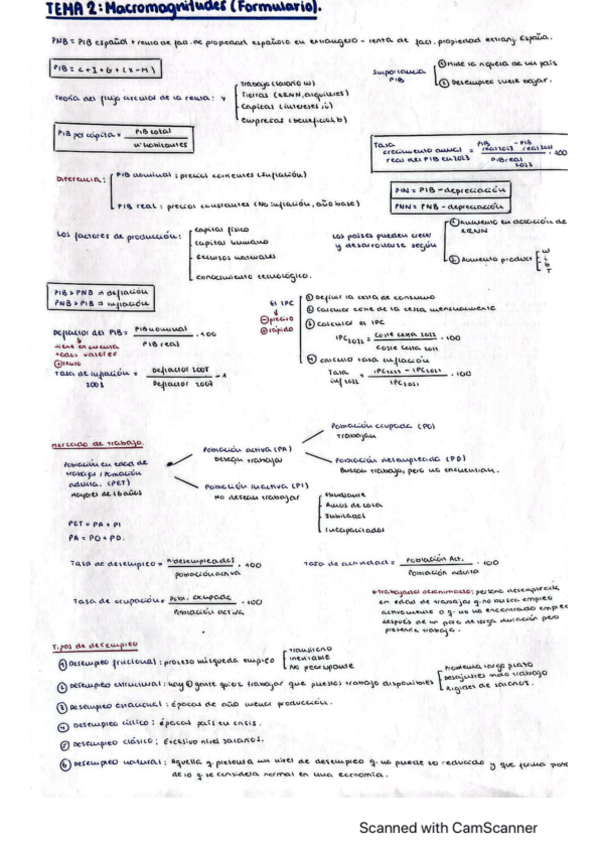 TEMA 2: Macromagnitudes (Formulario).
PNB = PIB español + renta de fac. de propiedad española en extranjero - renta de fact. propiedad extranj. España.
PIB = C + I + G + (X - M)
Importancia PIB
① Mide la riqueza de un país
② Desempleo suele bajar.
Teoría del flujo circular de la renta:
Trabajo (salario w)
Tierras (RRNN, alquileres)
Capital (intereses i)
Empresas (beneficios b)
PIB per cápita = PIB total / nº habitantes
Tasa crecimiento anual real del PIB en 2023 = PIB real 2023 - PIB real / PIB real · 100
Diferencia:
PIB nominal: precios corrientes (Inflación)
PIB real: precios constantes (No inflación, año base)
PIN = PIB - depreciación
PNN = PNB - depreciación
Los factores de producción:
capital físico
capital humano
recursos naturales
conocimiento tecnológico.
Los países pueden crecer y desarrollarse según
① Aumento en dotación de RRNN
② Aumento product
PIB > PNB = deflación
PNB > PIB = inflación
El IPC
⊖ preciso
⊕ rápido
① Definir la cesta de consumo
② Calcular coste de la cesta mensualmente
③ Calcular el IPC
④ Calculo tasa inflación
Deflactor del PIB = PIB nominal / PIB real · 100
Tasa de inflación 2008 = Deflactor 2008 / Deflactor 2007 - 1
Mercado de trabajo.
Población en edad de trabajar / Población adulta. (PET)
mayores de 16 años
Población activa (PA)
Desean trabajar
Población ocupada (PO)
Trabajan
Población desempleada (PD)
Buscan trabajo, pero no encuentran.
Población inactiva (PI)
No desean trabajar
Estudiante
Amos de casa
Jubilados
Incapacitados
PET = PA + PI
PA = PO + PD.
Tasa de desempleo = nº desempleados / población activa · 100
Tasa de actividad = Población Act. / Población adulta · 100
Tasa de ocupación = Pobl. ocupada / Población activa · 100
Trabajador desanimado: persona desempleada en edad de trabajar q no busca empleo activamente o q. no ha encontrado empleo después de un paro de larga duración pero
Tipos de desempleo
① Desempleo friccional: proceso búsqueda empleo
Transitorio
Inevitable
No preocupante
② Desempleo estructural: hay ⊕ gente q. trabajar que puestos trabajo disponibles
Problema largo plazo
Desajustes mdo trabajo
Rigidez de salarios.
③ Desempleo estacional: épocas de año menor producción.
④ Desempleo cíclico: épocas país en crisis.
⑤ Desempleo clásico: Excesivo nivel salarios.
⑥ Desempleo natural: Aquella q. presenta un nivel de desempleo q. no puede ser reducido y que forma parte
de lo q se considera normal en una economía.
Scanned with CamScanner